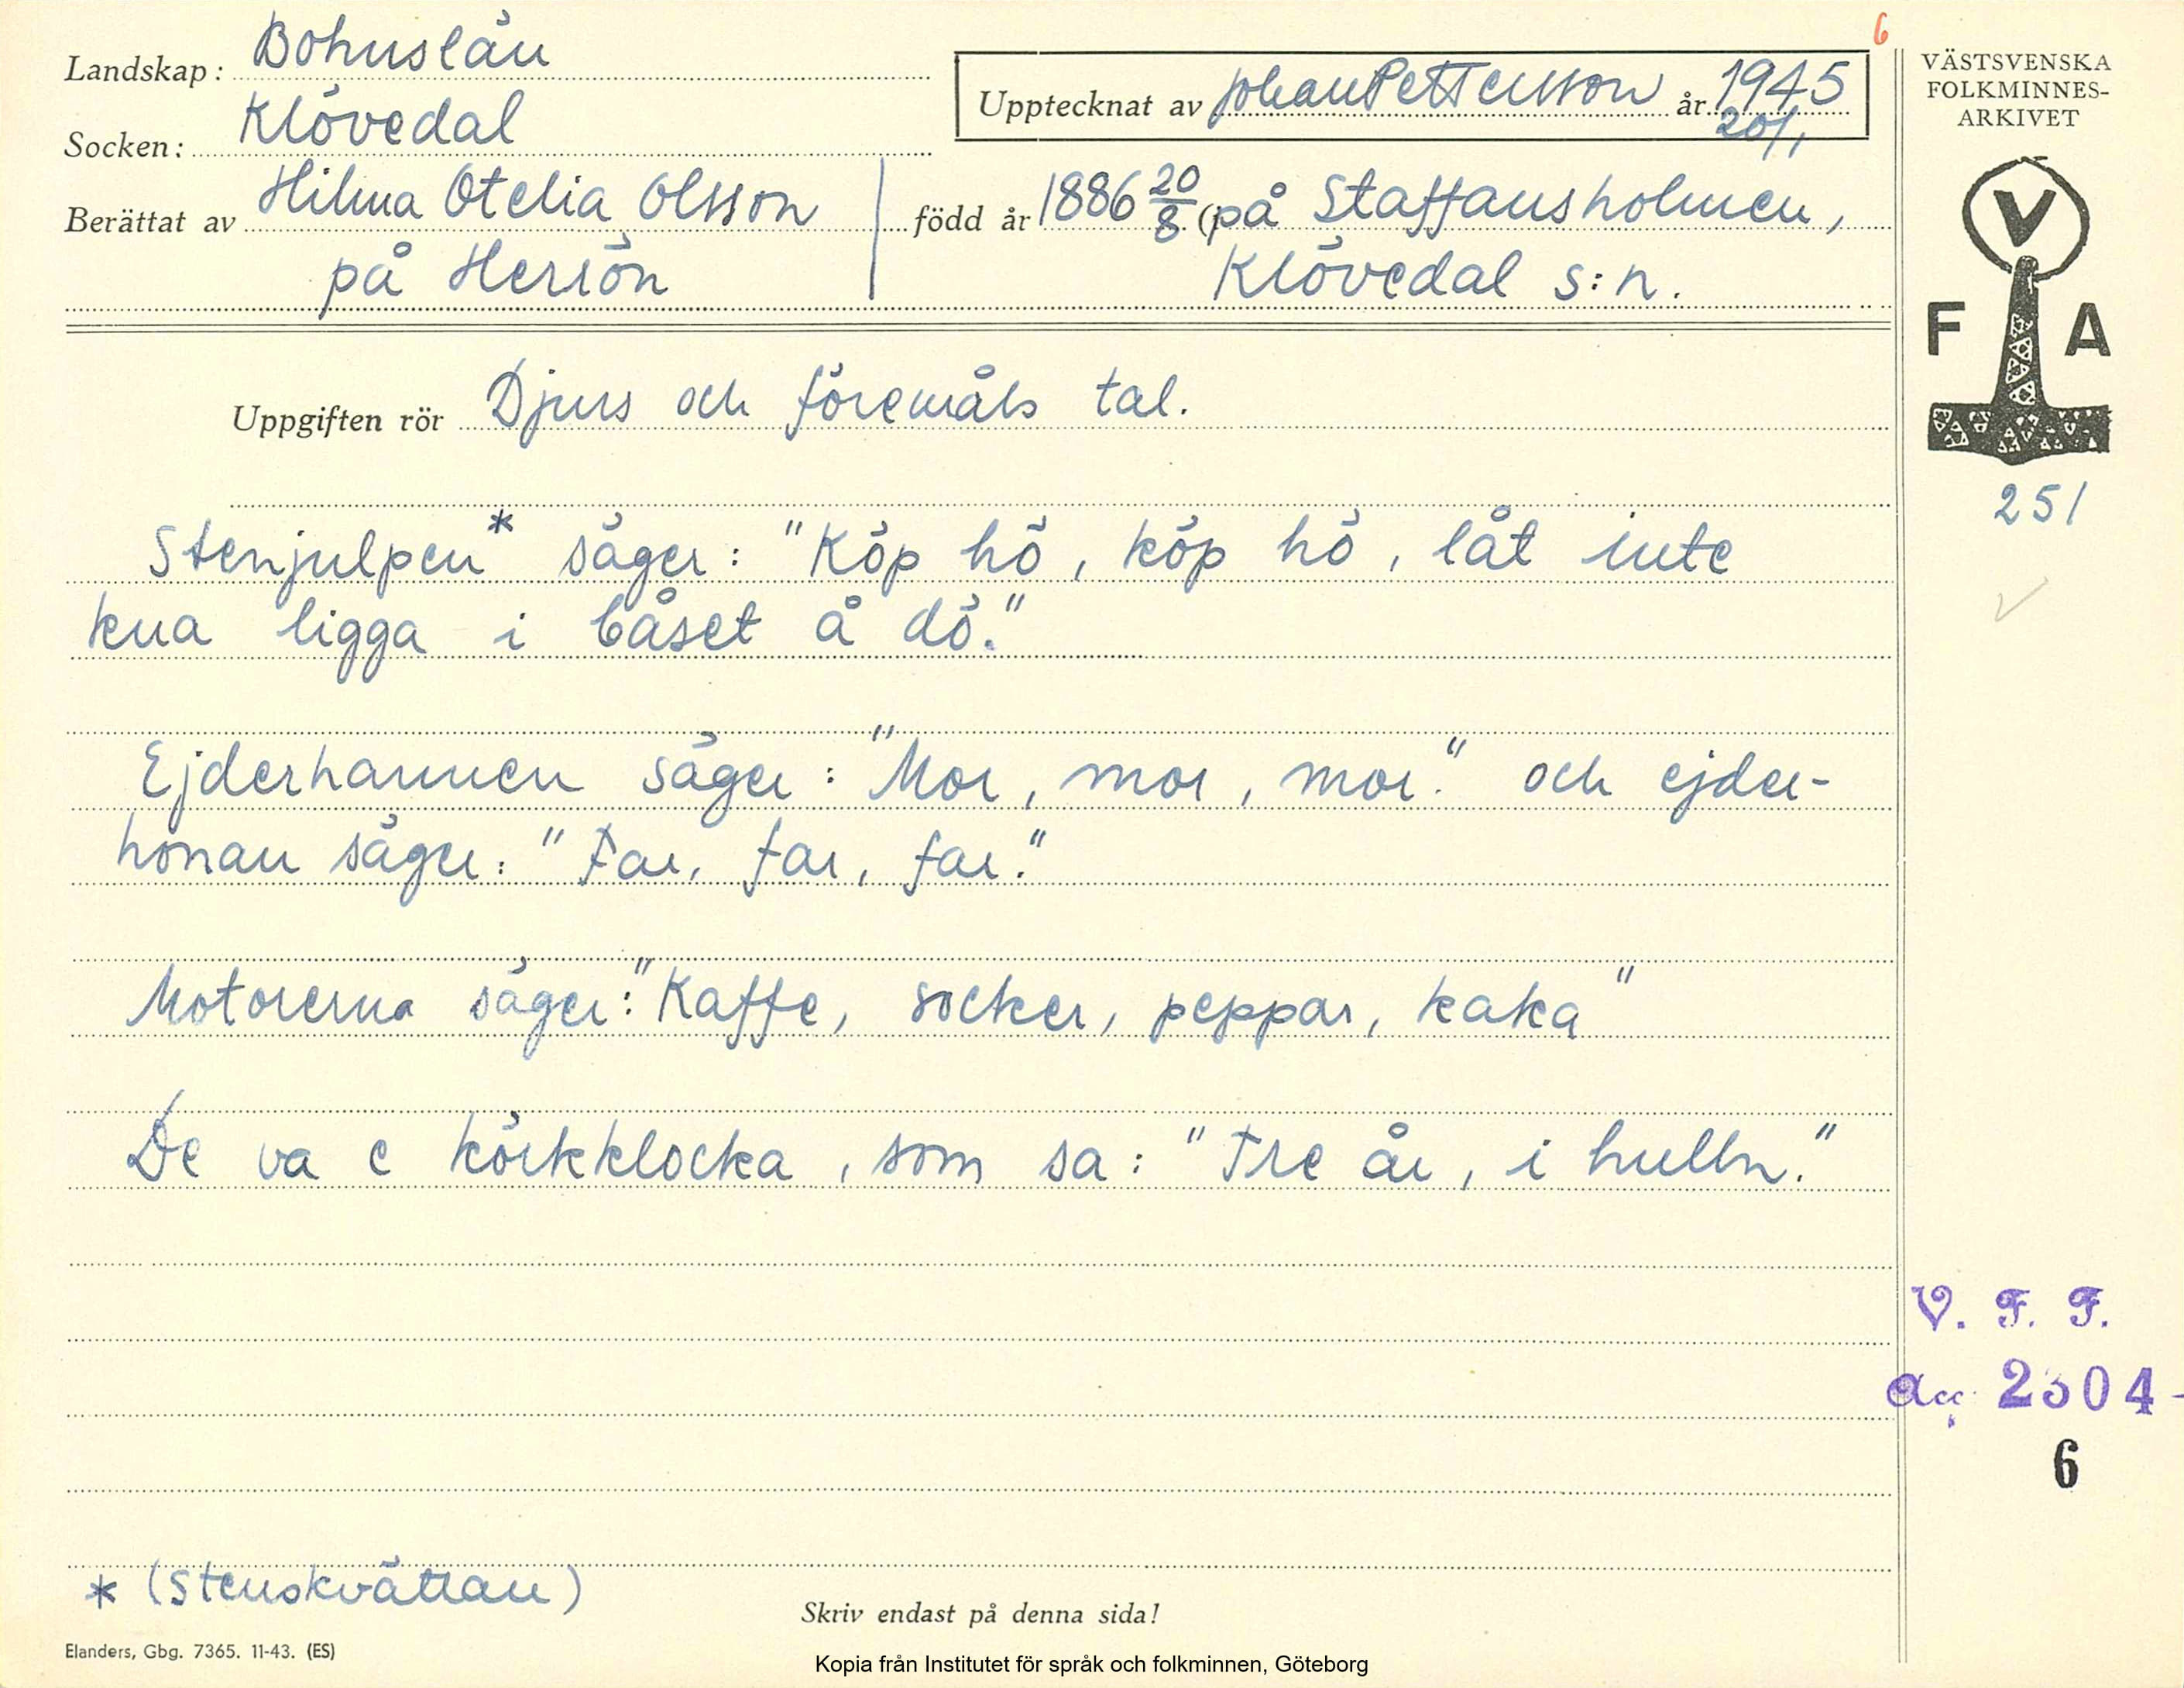 6
Landskap: Bohuslän
Socken: Klövedal
Upptecknat av Johan Pettersson år 1945
20/1
Berättat av Hilma Otelia Olsson
på Herrön
född år 1886 20/8 (på Staffansholmen,
Klövedal s:n.
VÄSTSVENSKA
FOLKMINNES-
ARKIVET
V
F A
251
Uppgiften rör Djurs och föremåls tal.
Stenjulpen* säger: "Köp hö, köp hö, låt inte
kua ligga i båset å dö."
Ejderhannen säger: "Mor, mor, mor." och ejder-
honan säger: "Far, far, far."
Motorerna säger: "Kaffe, socker, peppar, kaka"
De va e körkklocka, som sa: "Tre år, i hulln."
V. F. F.
Acc. 2304-
6
* (Stenskvättan)
Skriv endast på denna sida!
Elanders, Gbg. 7365. 11-43. (ES)
Kopia från Institutet för språk och folkminnen, Göteborg